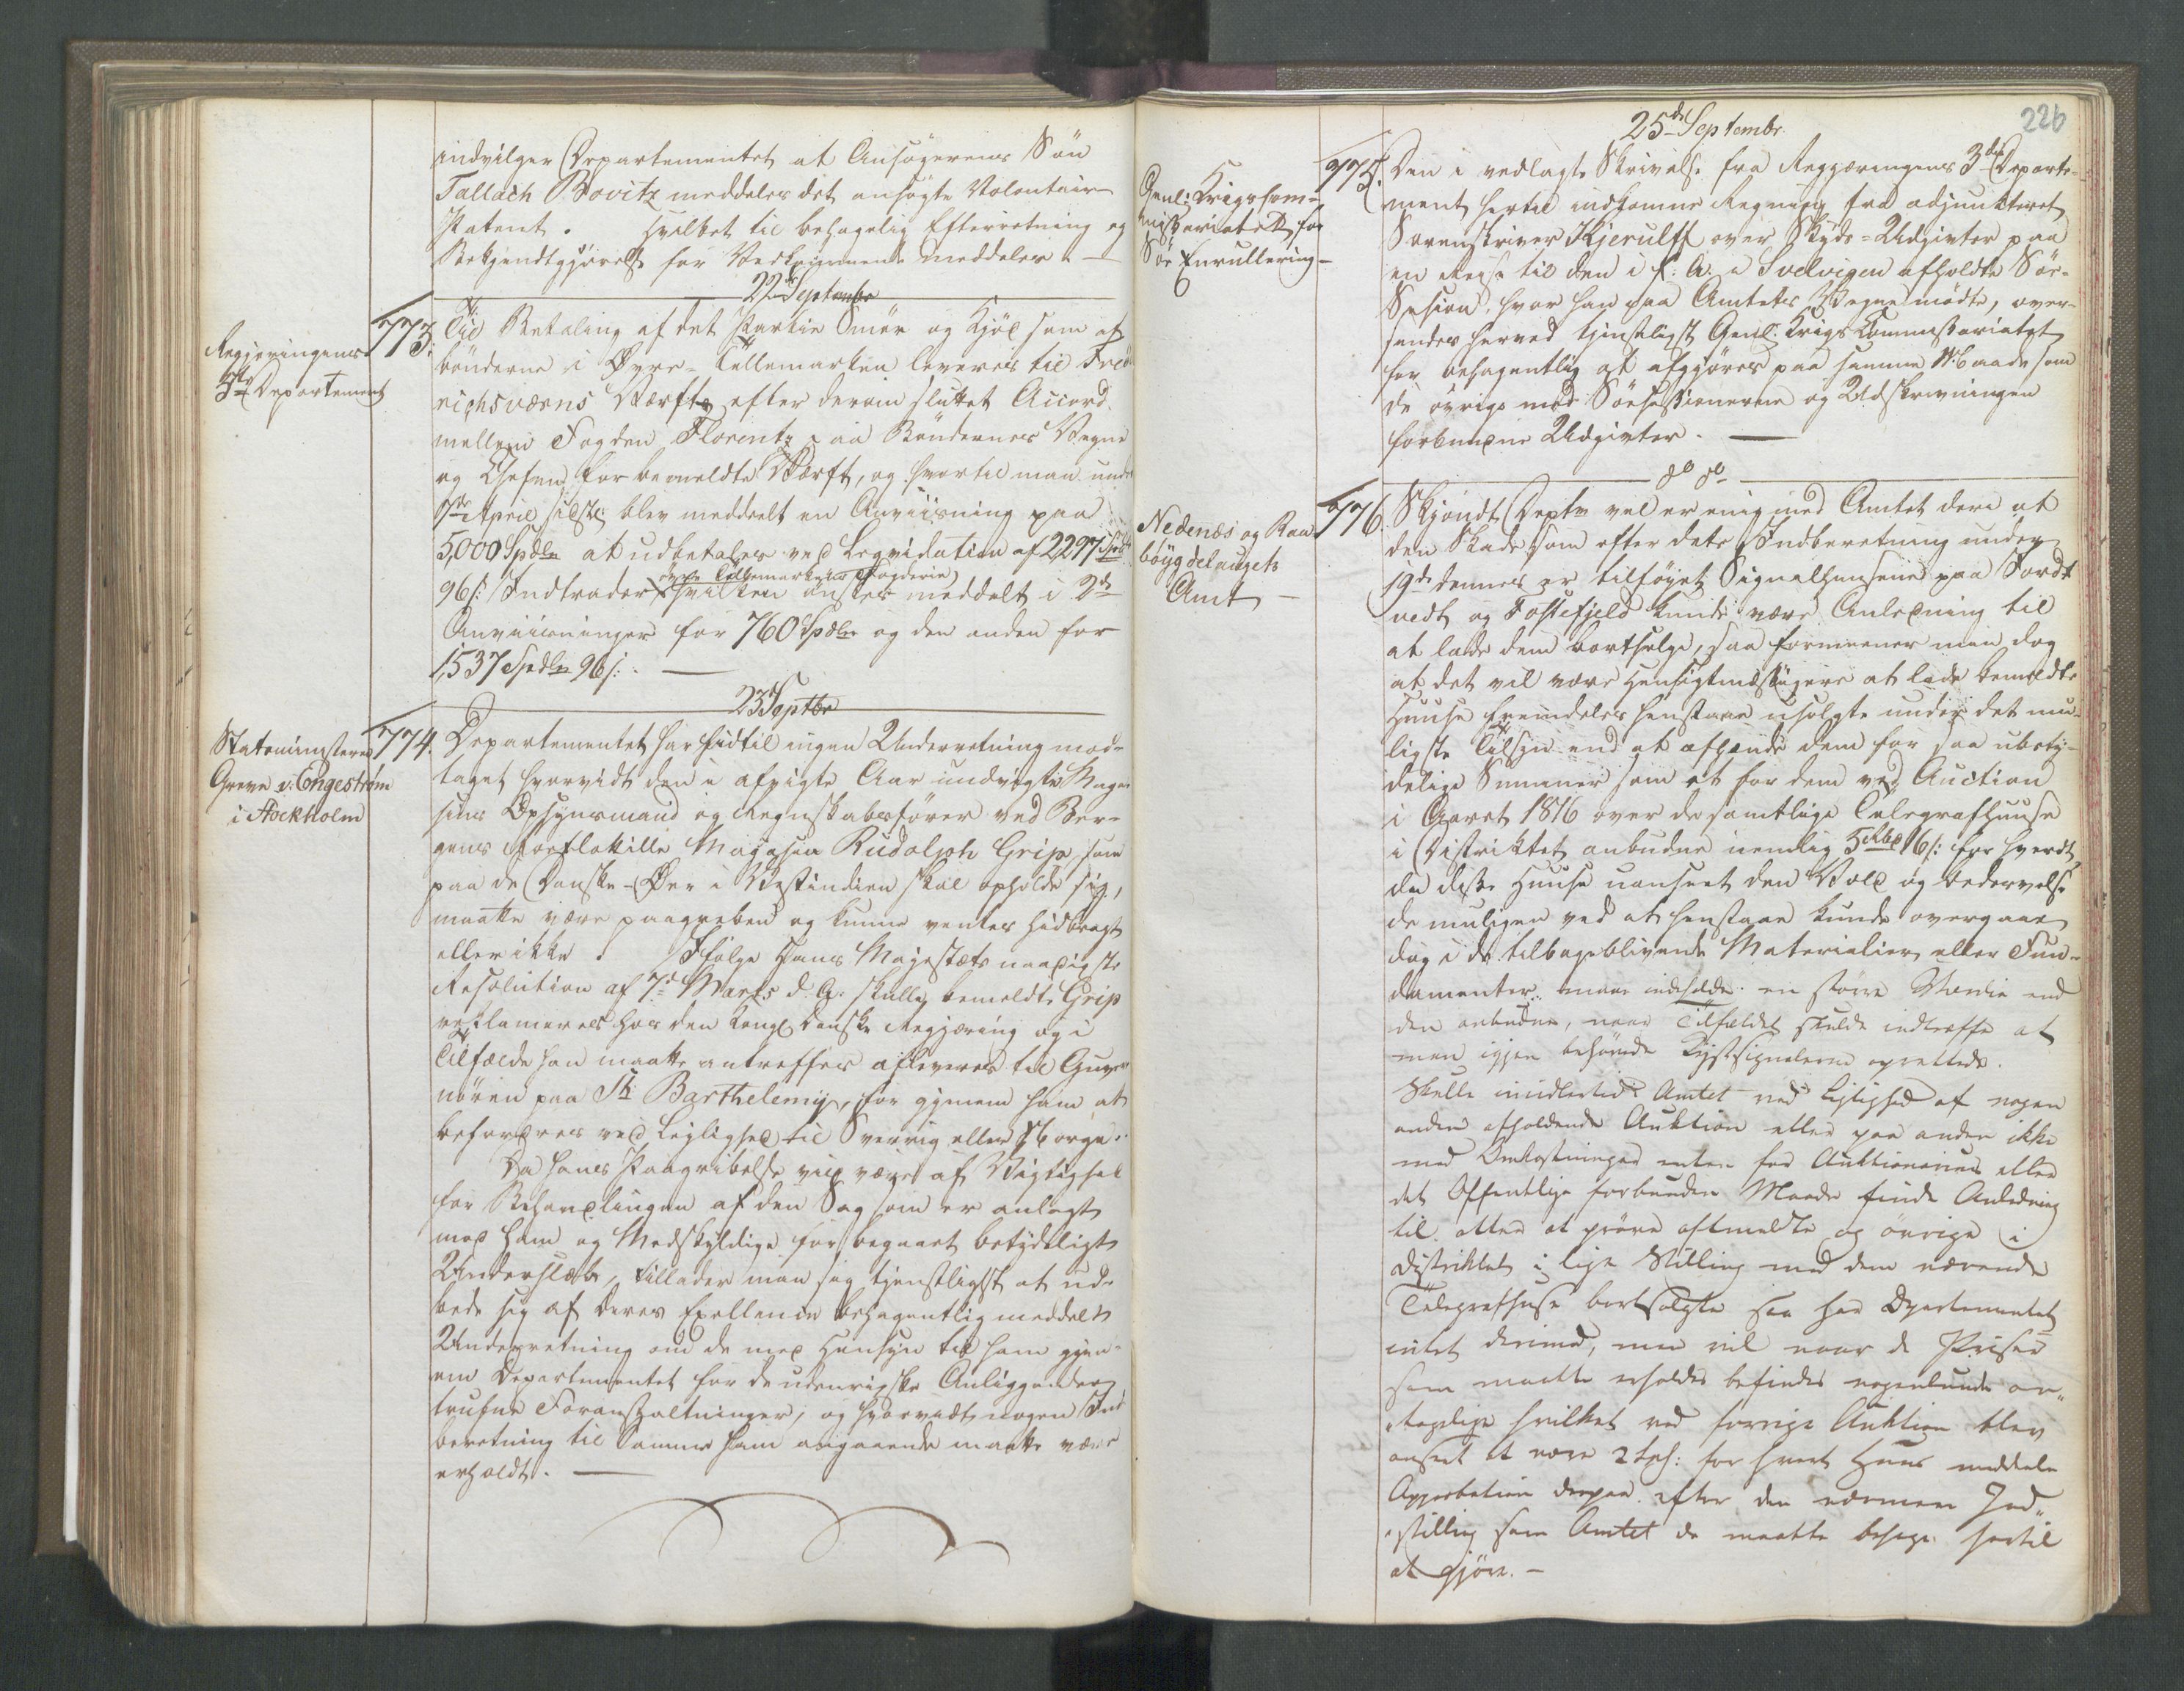 indvilger Departementet at Ansøgerens Søn
Tallach Bovitz meddeles det ansøgte Volontair
Patent. Hvilket til behagelig Efterretning og
Bekjendtgjørelse for Vedkommende meddeles. —
22 Septembr
Regjeringens
5te Departement
773.
Til Betaling af det Partie Smør og Kjød som af
bønderne i Øvre-Tellemarken leveres til Fred-
richsværns Værft efter derom sluttet Accord
mellem Fogden Florentz paa Bøndernes Vegne
og Chefen for bemeldte Værft, og hvortil man under
7de April sidstl: blev meddeelt en Anviisning paa
5,000 Spdlr at udbetales ved Leqvidation af 2297 Spdlr
øvre Tellemarkens Fogderie
96 s: Indtrader hvilken ønskes meddelt i 2de
Anviisninger for 760 Spdlr og den anden for
1,537 Spdlr 96 s: —
23 Septbr
Statsministeren
Greve v: Engestrøm
i Stockholm
774.
Departementet har hidtil ingen Underretning mod-
taget hvorvidt den i afvigte Aar undvigte Maga-
sins Opsynsmand og Regnskabsfører ved Ber-
gens Roeflotille Magasin Rudolph Grip, som
paa de Danske-Øer i Vestindien skal opholde sig,
maatte være paagreben og kunne ventes hidbragt
eller ikke. Ifølge Hans Majestæts naadigste
Resolution af 7de Marts d. A. skulle bemeldte Grip
reklameres hos den Kongl. Danske Regjering og i
Tilfælde han maatte antreffes afleveres til Guver-
nøren paa St: Barthelemy, for gjennem ham at
befordres ved Leilighed til Sverrig eller Norge.
Da hans Paagribelse vil være af Vigtighed
for Behandlingen af den Sag som er anlagt
mod ham og Medskyldige for begaaet betydeligt
Underslæb, tillader man sig tjenstligst at ud-
bede sig af Deres Exellence behagentlig meddelt
Underretning om de med Hensyn til ham gjen-
nem Departementet for de udenrigske Anliggender
trufne Foranstaltninger, og hvorvidt nogen Ind
beretning til Samme ham angaaende maatte være
erholdt. —
226
25de Septembr.
Genl: Krigskom-
missariatet for
Søe Enrullering —
775.
Den i vedlagte Skrivelse fra Regjæringens 3die Departe-
ment hertil indkomne Regning fra adjunkteret
Sorenskriver Kjerulff over Skyds-Udgivter paa
en Reise til den i f: A. i Svelvigen afholdte Søe-
Session, hvor han paa Amtets Vegne mødte, over-
sendes herved tjenstligst Genl: Krigs Kommissariatet
for behagentlig at afgjøres paa samme Maade som
de øvrige med Søesessionerne og Udskrivningen
forbundne Udgivter. —
do do
Nedenæs og Raa
bøygdelaugets
Amt —
776.
Skjøndt Deptm vel er enig med Amtet deri at
den Skade som efter dets Indberetning under
19de dennes er tilføyet Signalhuusene paa Fordt
vedt og Tostefjeld kunde være Anledning til
at lade dem bortselge, saa formeener man dog
at det vil være Hensigtmæssigere at lade bemeldte
Huuse fremdeles henstaae usolgte under det mu-
ligste Tilsyn end at afhænde dem for saa ubety-
delige Summer som et for dem ved Auction
i Aaret 1816 over de samtlige Telegrafhuuse
i Distriktet anbudne nemlig 5 Rbd 16 s: for hverdt,
da disse Huuse uanseet den Vold og bedervelse
de muligen ved at henstaae kunde overgaae
dog i de tilbageblivende Materialier eller Fun-
damenter maae indeholde en større Værdie end
den anbudne, naar Tilfældet skulde indtreffe at
man igjen behøvede Kystsignalerne oprettede.
Skulle imidlertid Amtet ved Leilighed af nogen
anden afholdende Auktion eller paa anden ikke
med Omkostninger enten for Auktionerne eller
det Offentlige forbunden Maade finde Anledning
til atter at prøve oftmeldte og øvrige i
Distriktet i lige Stilling med dem værende
Telegrafhuse bortsolgte saa har Departementet
intet derimod, men vil naar de Priser
som maatte erholdes befindes nogenlunde an-
tagelige hvilket ved forrige Auktion blev
anseet at være 2 Spd: for hvert Huus meddele
Approbation derpaa efter den nærmere Ind-
stilling som Amtet da maatte behage hertil
at gjøre. —